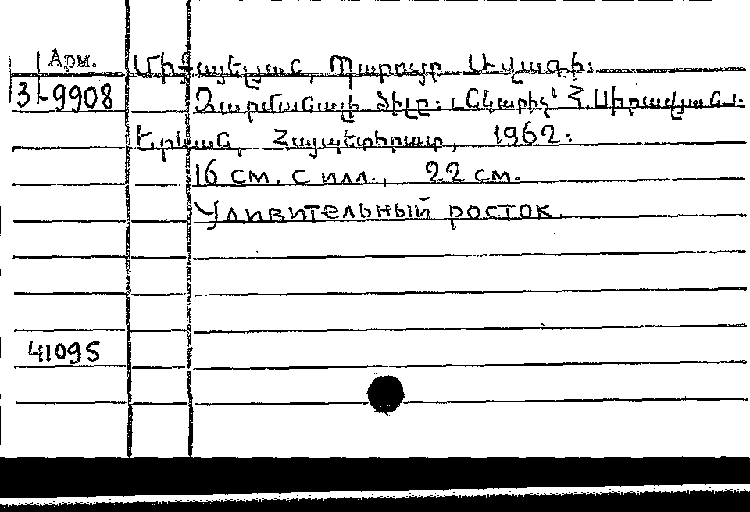 Арм. Միքայելյան, Պարույր Ավագի:
3-9908 Զարմանալի ծիլը: Նկարիչ՝ Հ. Սիրավյան:
Երևան, Հայպետհրատ, 1962:
16 см. с илл., 22 см.
Удивительный росток.
41095